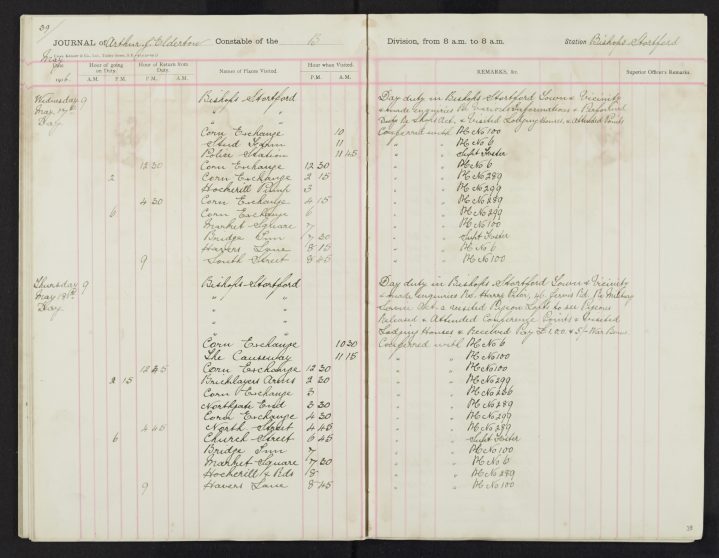 39/
JOURNAL of Arthur J. Elderton Constable of the B Division, from 8 a.m. to 8 a.m. Station Bishops Stortford
May
Date Hour of going on Duty. Hour of Return from Duty. Names of Places Visited. Hour when Visited. REMARKS, &c. Superior Officer's Remarks.
1916. A.M. P.M. P.M. A.M. P.M. A.M.
Wednesday 9 Bishops Stortford Day duty in Bishops Stortford Town & Vicinity
May 17th " " & made enquiries Re Various Informations & Performed
Day " " Duty Re Shops Act. & Visited Lodging Houses, & attended Points
Corn Exchange 10 Conferred with PC No 100
Stud Farm 11 " " PC No 6
Police Station 11 45 " " Supt Foster
12 30 Corn Exchange 12 30 " " PC No 6
2 Corn Exchange 2 15 " " PC No 289
Hockerill Pump 3 " " PC No 299
4 30 Corn Exchange 4 15 " " PC No 289
6 Corn Exchange 6 " " PC No 299
Market Square 7 " " PC No 100
Bridge Inn 7 30 " " Supt Foster
Havers Lane 8 15 " " PC No 6
9 South Street 8 45 " " PC No 100
Thursday 9 Bishops Stortford Day duty in Bishops Stortford Town & Vicinity
May 18th " " & made enquiries Re. Harry Prior, Re Military
Day " " Service Act & visited Pigeon Lofts to see Pigeons
" " Released & Attended Conference Points & Visited
" " Lodging Houses & Received Pay £1.00. & 5/- War Bonus
Corn Exchange 10 30 Conferred with PC No 6
The Causeway 11 15 " " PC No 100
12 45 Corn Exchange 12 30 " " PC No 100
2 15 Bricklayers Arms 2 30 " " PC No 299
Corn Exchange 3 " " PC No 286
Northgate End 3 30 " " PC No 289
Corn Exchange 4 30 " " PC No 299
4 45 North Street 4 45 " " PC No 289
6 Church Street 6 45 " " Supt Foster
Bridge Inn 7 " " PC No 100
Market Square 7 30 " " PC No 6
Hockerill X Rds 8 " " PC No 289
9 Havers Lane 8 45 " " PC No 100